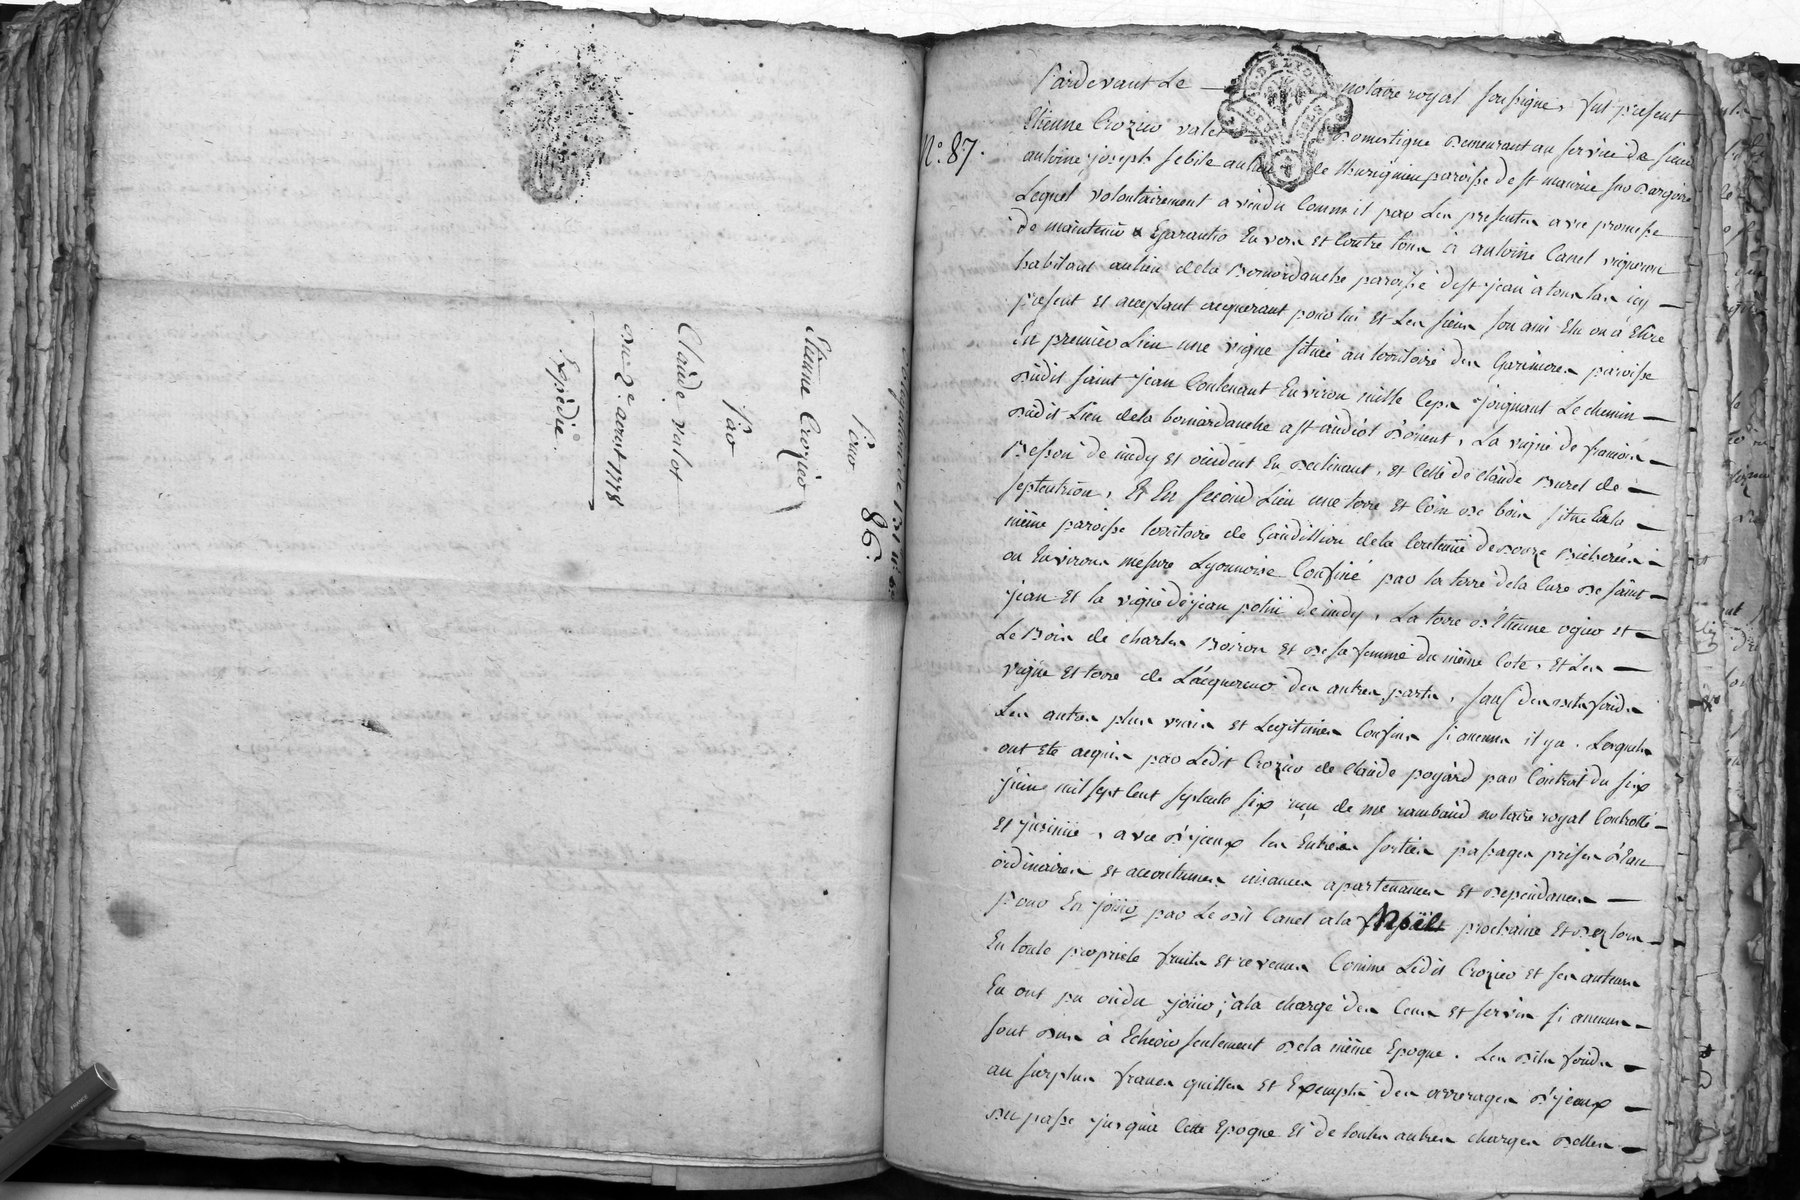 86.
Pour
Etienne Crozier
Par
Claude valot
du 2e aoust 1778
Expédié.
Pardevant Le notaire royal soussigné, fut présent
N.° 87.
Etienne Crozier valet domestique demeurant au service de sieur
antoine joseph sebile au lieu de paroisse de st maurice sur dargoire
Lequel volontairement a vendu Comm'il par Les presentes avec promesse
de maintenir & Garantir Envers et Contre tous à antoine Canel vigneron
habitant au lieu dela Bornardanche paroisse d st jean à toulas icy
présent et acceptant acquerant pour lui et Les siens son ami Elu ou à Elire
En premier Lieu une vigne située au territoire des Garimores paroisse
dudit saint jean Contenant Environ mille Ceps joignant Le chemin
dudit Lieu dela bornardanche a st andiol d'orient, La vigne de françois
Besson de midy et occident En declinant, et Celle de Claude Burel de
septentrion, Et En second Lieu une terre et Coin de bois située Enla
même paroisse territoire de Gaudillion dela Contenue de onze Bicherées
ou Environ mesure Lyonnoise Confiné par la terre dela Cure de saint
jean Et la vigne de jean de midy, La terre d'Etienne ogier et
Le Bois de charles Boiron et de sa femme du même Coté, et Les
vigne et terre de L'acquereur des autres parts, sauf des dits fonds
Les autres plus vrais et Legitimes Confins si aucuns il y a. Lesquels
ont eté acquis par Ledit Crozier de Claude poyard par Contrat du six
juin mil sept Cent septente six reçu de me rambaud notaire royal Controllé
et insinué, avec d'yceux les Entrées sorties passages prises d'Eau
ordinaires et accoutumés aisances apartenances et dependances
pour En joüir par Le dit Canel ala Noël prochaine et dez lors
En toute proprieté fruits et revenus Comme Ledit Crozier et ses auteurs
En ont pu ou du joüir; ala charge des Cens et servis si aucuns
sont dus à Echeoir seulement dela même Epoque. Les dits fonds
au surplus francs quittes et Exempts des arrerages d'yceux
du passé jusqu'a Cette Epoque Et de toutes autres charges dettes